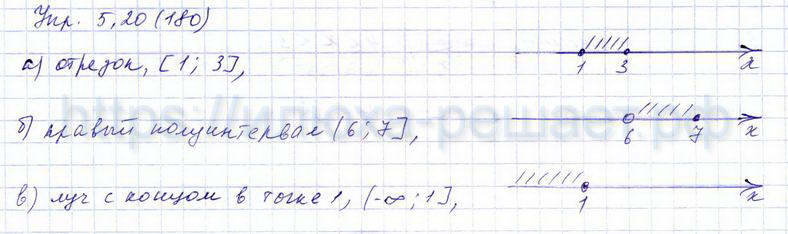 Упр. 5,20 (180)
а) отрезок, [1; 3],
1 3 x
б) правый полуинтервал (6; 7],
6 7 x
в) луч с концом в точке 1, (-∞; 1],
1 x
https://илюха-решает.рф